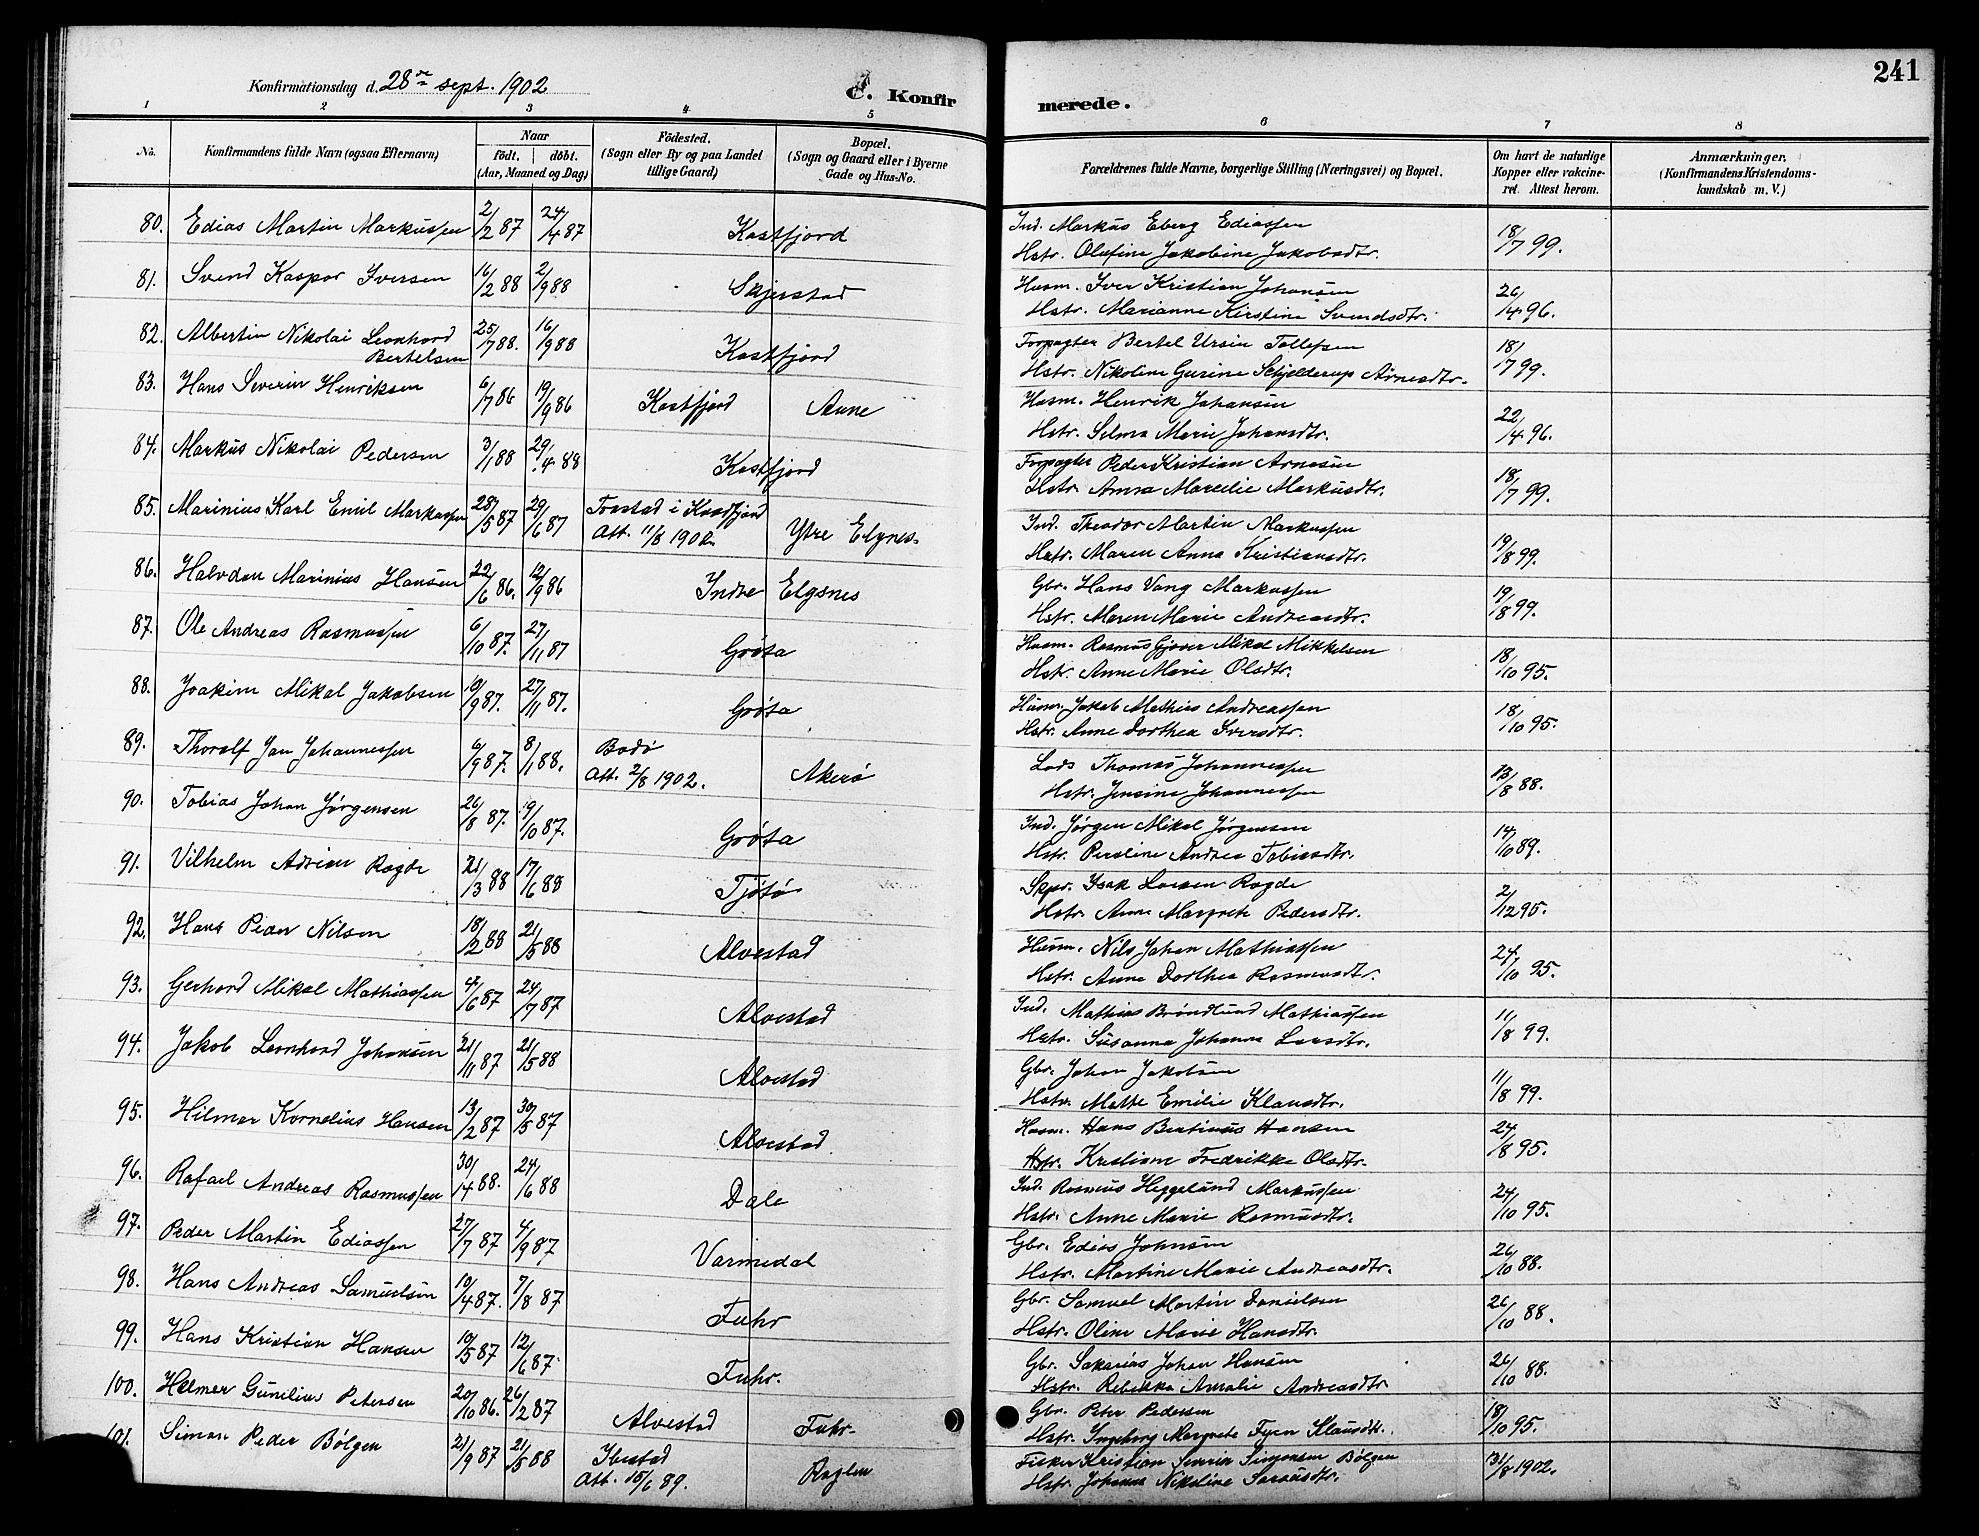 241
Konfirmationsdag d. 28de sept. 1902
C. Konfirmerede.
1 2 3 4 5 6 7 8
No.
Konfirmandens fulde Navn (ogsaa Efternavn)
Naar
födt. döbt.
(Aar, Maaned og Dag)
Födested.
(Sogn eller By og paa Landet
tillige Gaard)
Bopæl.
(Sogn og Gaard eller i Byerne
Gade og Hus-No.
Forældrenes fulde Navne, borgerlige Stilling (Næringsvei) og Bopæl.
Om havt de naturlige
Kopper eller vakcine-
ret. Attest herom.
Anmærkninger.
(Konfirmandens Kristendoms-
kundskab m. V.)
80. Edias Martin Markussen 2/2 87 24/4 87 Kastfjord Ind. Markus Eberg Ediassen 18/7 99.
Hstr. Olufine Jakobine Jakobsdtr.
81. Svend Kaspar Iversen 16/2 88 2/9 88 Skjerstad Husm. Iver Kristian Johansen 26/4 96.
Hstr. Marianne Kirstine Svendsdtr.
82. Albertin Nikolai Leonhard 25/7 88. 16/9 88 Kastfjord Forpagter Bertel Ursin Tollefsen 18/7 99.
Bertelsen Hstr. Nikoline Gurine Schjelderup Arnesdtr.
83. Hans Severin Henriksen 6/7 86 19/9 86 Kastfjord Aune Husm. Henrik Johansen 22/4 96.
Hstr. Selma Marie Johansdtr.
84. Markus Nikolai Pedersen 3/1 88 29/4 88 Kastfjord Forpagter Peder Kristian Arnesen 18/7 99.
Hstr. Anna Marcelie Markusdtr.
85. Marinius Karl Emil Markussen 28/5 87 29/6 87 Forstad i Kvædfjord Ytre Elgnes. Ind. Theodor Martin Markussen 19/8 99.
Att. 11/8 1902. Hstr. Maren Anna Kristiansdtr.
86. Halvdan Marinius Hansen 22/6 86. 12/9 86 Indre Elgsnes Gbr. Hans Vang Markussen 19/8 99.
Hstr. Maren Marie Andreasdtr.
87. Ole Andreas Rasmussen 6/10 87. 27/11 87 Grøta Husm. Rasmus Gjøver Mikal Mikkelsen 18/10 95.
Hstr. Anne Marie Olsdtr.
88. Joakim Mikal Jakobsen 10/9 87. 27/11 87. Grøta Husm. Jakob Mathias Andreassen 18/10 95.
Hstr. Anne Dorthea Iversdtr.
89. Thoralf Jan Johannessen 6/9 87. 8/1 88. Bodø Akerø Lods Thomas Johannessen 13/8 88.
Att. 2/8 1902. Hstr. Jensine Johannessen
90. Tobias Johan Jørgensen 26/8 87. 9/10 87. Grøta Ind. Jørgen Mikal Jørgensen 14/10 89.
Hstr. Peroline Andrea Tobiasdtr.
91. Vilhelm Adrian Ragde 21/3 88 17/6 88 Tjøtø Skpr. Isak Larsen Ragde 2/12 95.
Hstr. Anna Margrete Pedersdtr.
92. Hans Peder Nilsen 18/2 88 21/5 88 Alvestad Husm. Nils Johan Mathiassen 24/10 95.
Hstr. Anne Dorthea Rasmusdtr.
93. Gerhard Mikal Mathiassen 4/6 87 24/7 87 Alvestad Ind. Mathias Brøndlund Mathiassen 11/8 99.
Hstr. Susanna Johanna Larsdtr.
94. Jakob Leonhard Johansen 21/11 87 21/5 88 Alvestad Gbr. Johan Jakobsen 11/8 99.
Hstr. Mette Emilie Klausdtr.
95. Hilmar Kornelius Hansen 13/2 87 30/5 87 Alvestad Husm. Hans Bertinus Hansen 24/8 95.
Hstr. Kristiane Fredrikke Olsdtr.
96. Rafael Andreas Rasmussen 30/4 88. 24/6 88 Dale Ind. Rasmus Heggelund Markussen 24/10 95.
Hstr. Anne Marie Rasmusdtr.
97. Peder Martin Ediassen 27/7 87 4/9 87 Varmedal Gbr. Edias Johnsen 26/10 88.
Hstr. Martine Marie Andreasdtr.
98. Hans Andreas Samuelsen 10/4 87. 7/8 87 Fuhr Gbr. Samuel Martin Danielsen 26/10 88.
Hstr. Oline Marie Hansdtr.
99. Hans Kristian Hansen 10/5 87 12/6 87. Fuhr. Gbr. Sakarias Johan Hansen 26/10 88.
Hstr. Rebekka Amalie Andreasdtr
100. Helmer Gunelius Petersen 20/10 86. 26/12 87 Alvestad Fuhr. Gbr. Peter Pedersen 18/10 95.
Hstr. Ingeborg Margrete Fyen Klausdtr.
101. Simon Peder Bølgen 21/9 87 21/5 88 Ibestad Røglen Fisker Kristian Severin Simonsen Bølgen 31/8 1902.
Att. 15/6 89. Hstr. Johanna Nikoline Sarausdtr.